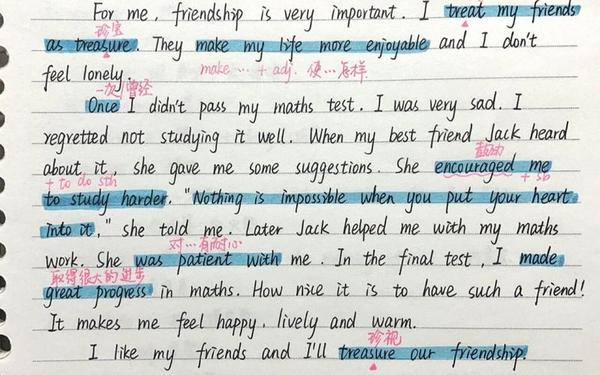 For me, friendship is very important. I treat my friends
珍宝
as treasure. They make my life more enjoyable and I don't
feel lonely. make … + adj. 使…怎样
一次/曾经
Once I didn't pass my maths test. I was very sad. I
regretted not studying it well. When my best friend Jack heard
鼓励
about it, she gave me some suggestions. She encouraged me
+ to do sth + sb
to study harder. "Nothing is impossible when you put your heart
into it," she told me. Later Jack helped me with my maths
对…有耐心
work. She was patient with me. In the final test, I made
取得很大的进步
great progress in maths. How nice it is to have such a friend!
It makes me feel happy, lively and warm.
珍视
I like my friends and I'll treasure our friendship.